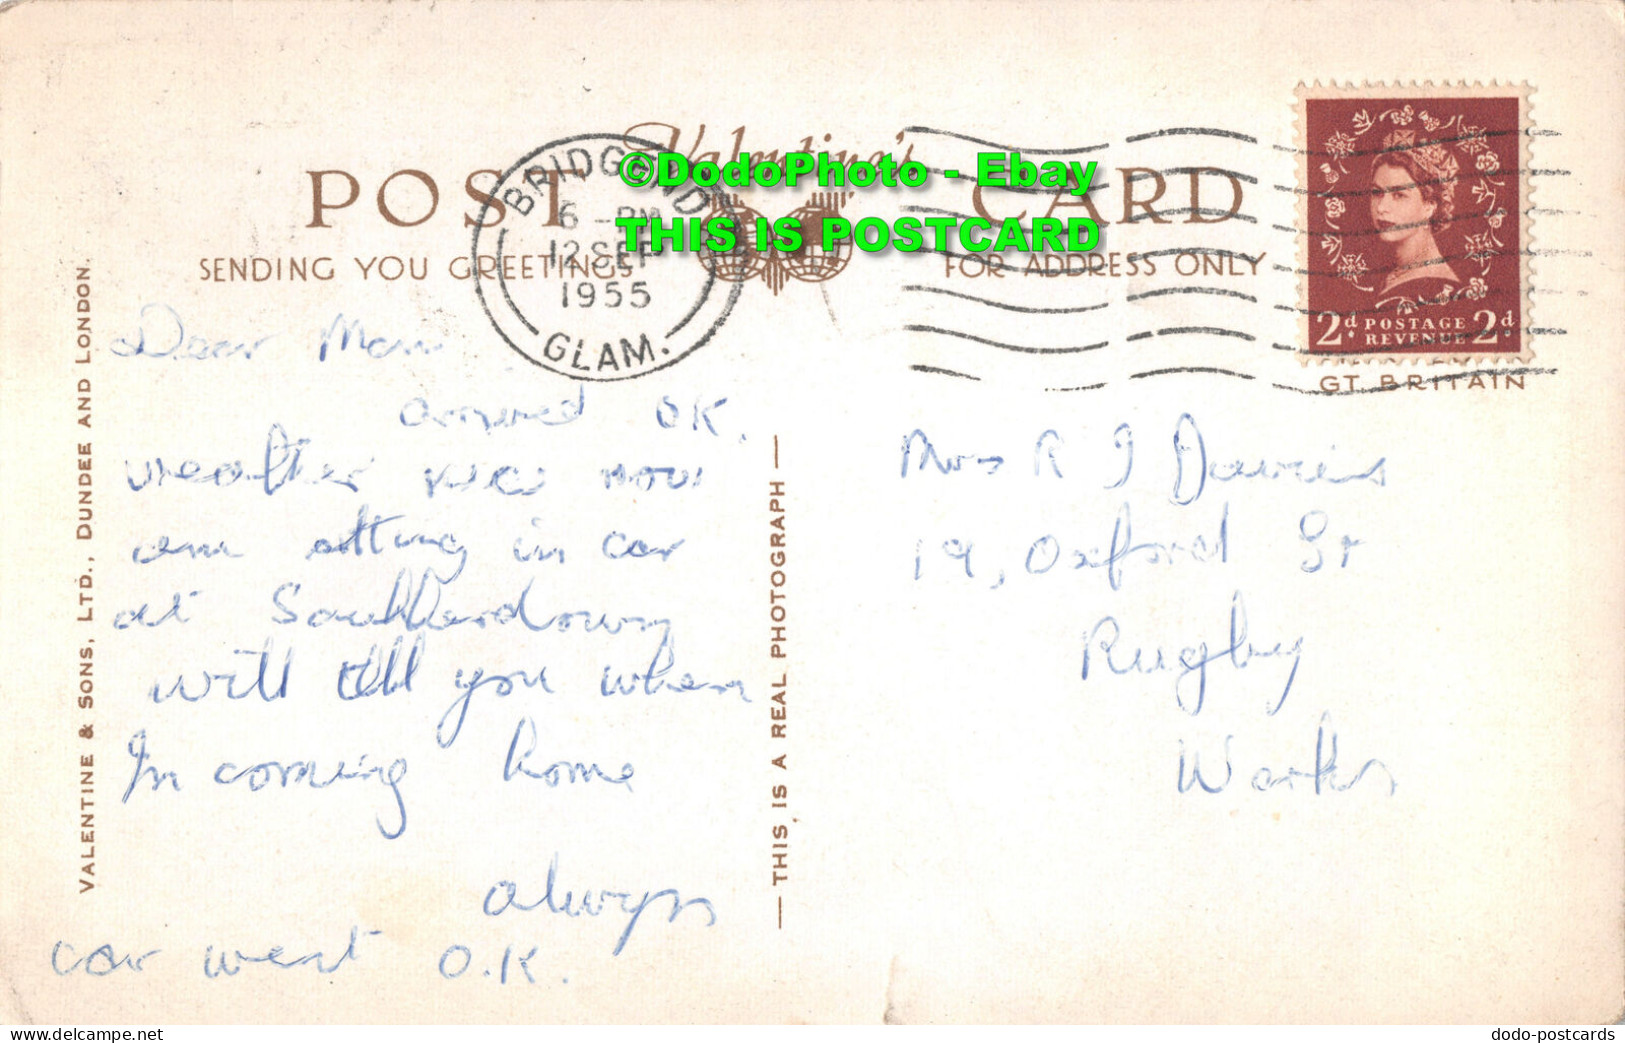 Valentine's
POST CARD
SENDING YOU GREETINGS
FOR ADDRESS ONLY
BRIDGEND
6 - PM
12 SEP
1955
GLAM.
©DodoPhoto - Ebay
THIS IS POSTCARD
2d POSTAGE REVENUE 2d
GT. BRITAIN
VALENTINE & SONS, LTD., DUNDEE AND LONDON.
Dear Mam
arrived OK.
weather nice now
am sitting in car
at Southerdown
will tell you when
Im coming home
alwyn
car went O.K.
— THIS IS A REAL PHOTOGRAPH —
Mrs R J Davies
19, Oxford St
Rugby
Warks
dodo-postcards
www.delcampe.net